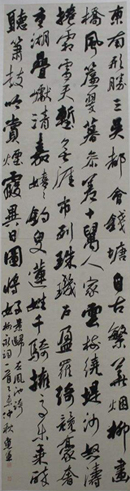 東南形勝三吳都會錢塘自古繁華烟柳畫
橋風簾翠幕參差十萬人家雲樹繞堤沙怒濤
捲霜雪天塹無涯市列珠璣戶盈羅綺競豪奢
重湖疊巘清嘉嬉嬉釣叟蓮娃千騎擁高牙乘醉
聽簫鼓吟賞煙霞異日圖將好景歸去鳳池誇
柳永詞